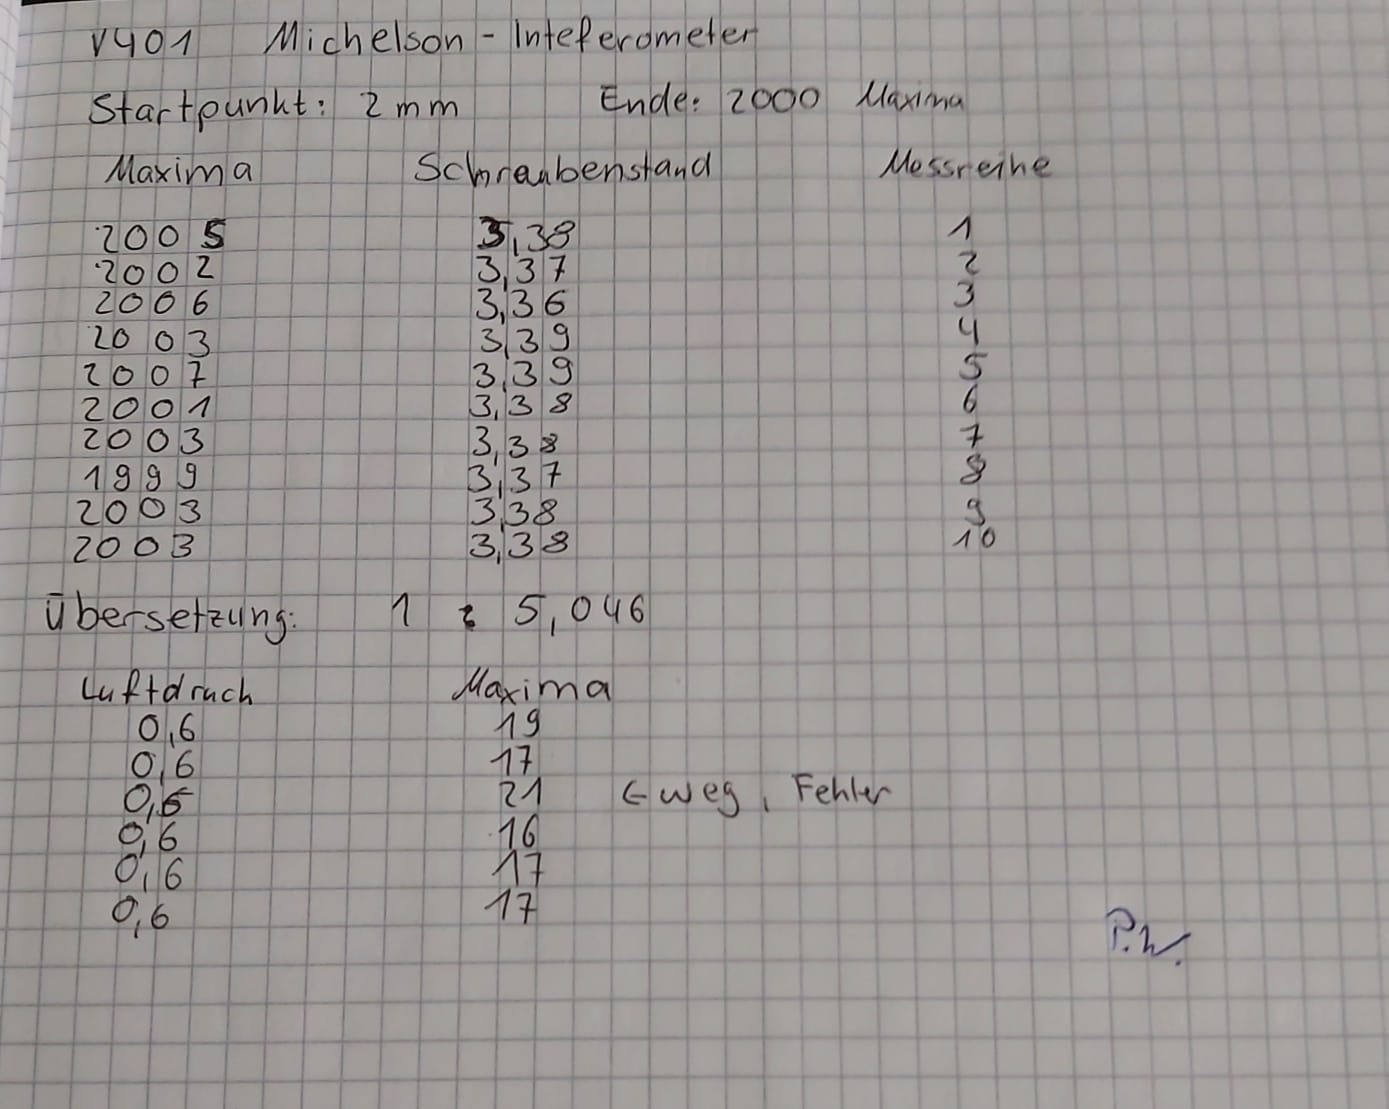 V401 Michelson - Inteferometer
Startpunkt: 2 mm Ende: 2000 Maxima
Maxima Schraubenstand Messreihe
2005 3,38 1
2002 3,37 2
2006 3,36 3
2003 3,39 4
2007 3,39 5
2001 3,38 6
2003 3,38 7
1999 3,37 8
2003 3,38 9
2003 3,38 10
Übersetzung: 1 : 5,046
Luftdruck Maxima
0,6 19
0,6 17
0,6 21 ← weg, Fehler
0,6 16
0,6 17
0,6 17
P.W.